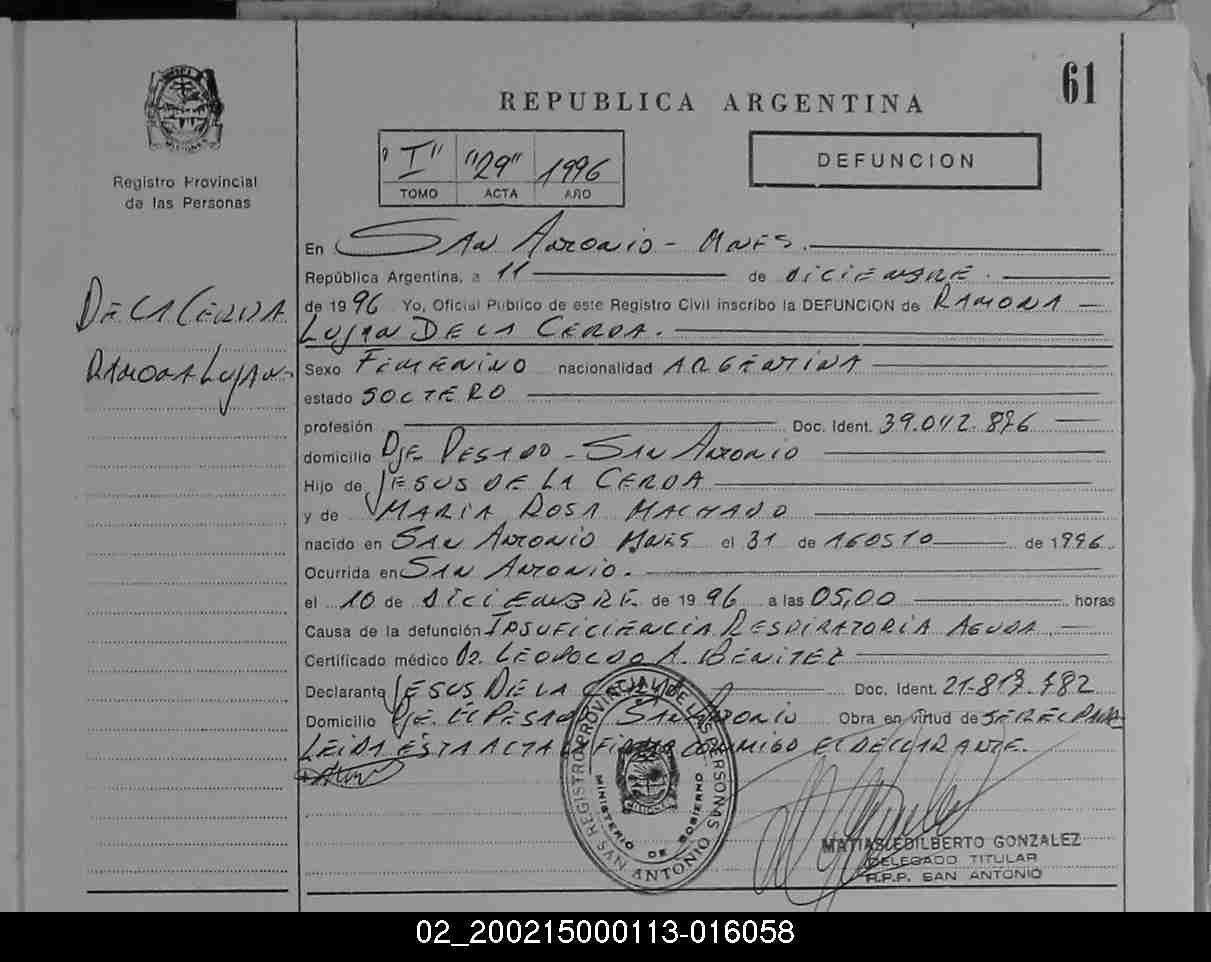 61
REPUBLICA ARGENTINA
"I" "29" 1996
TOMO ACTA AÑO
DEFUNCION
Registro Provincial
de las Personas
DE LA CERDA
RAMONA LUJAN
En SAN ANTONIO - MNES.
República Argentina, a 11 de DICIEMBRE.
de 1996 Yo, Oficial Público de este Registro Civil inscribo la DEFUNCION de RAMONA
LUJAN DE LA CERDA.
Sexo FEMENINO nacionalidad ARGENTINA
estado SOLTERO
profesión Doc. Ident. 39.042.876
domicilio PESADO - SAN ANTONIO
Hijo de JESUS DE LA CERDA
y de MARIA ROSA MACHADO
nacido en SAN ANTONIO MNES el 31 de AGOSTO de 1996
Ocurrida en SAN ANTONIO.
el 10 de DICIEMBRE de 1996 a las 05,00 horas
Causa de la defunción INSUFICIENCIA RESPIRATORIA AGUDA
Certificado médico DR. LEOPOLDO A. BENITEZ
Declarante JESUS DE LA CERDA Doc. Ident. 21.819.482
Domicilio EL PESADO SAN ANTONIO Obra en virtud de SER EL PADRE
LEIDA ESTA ACTA LA FIRMA CONMIGO EL DECLARANTE.
REGISTRO PROVINCIAL DE LAS PERSONAS
MINISTERIO DE GOBIERNO
SAN ANTONIO
MATIAS EDILBERTO GONZALEZ
DELEGADO TITULAR
R.P.P. SAN ANTONIO
02_200215000113-016058